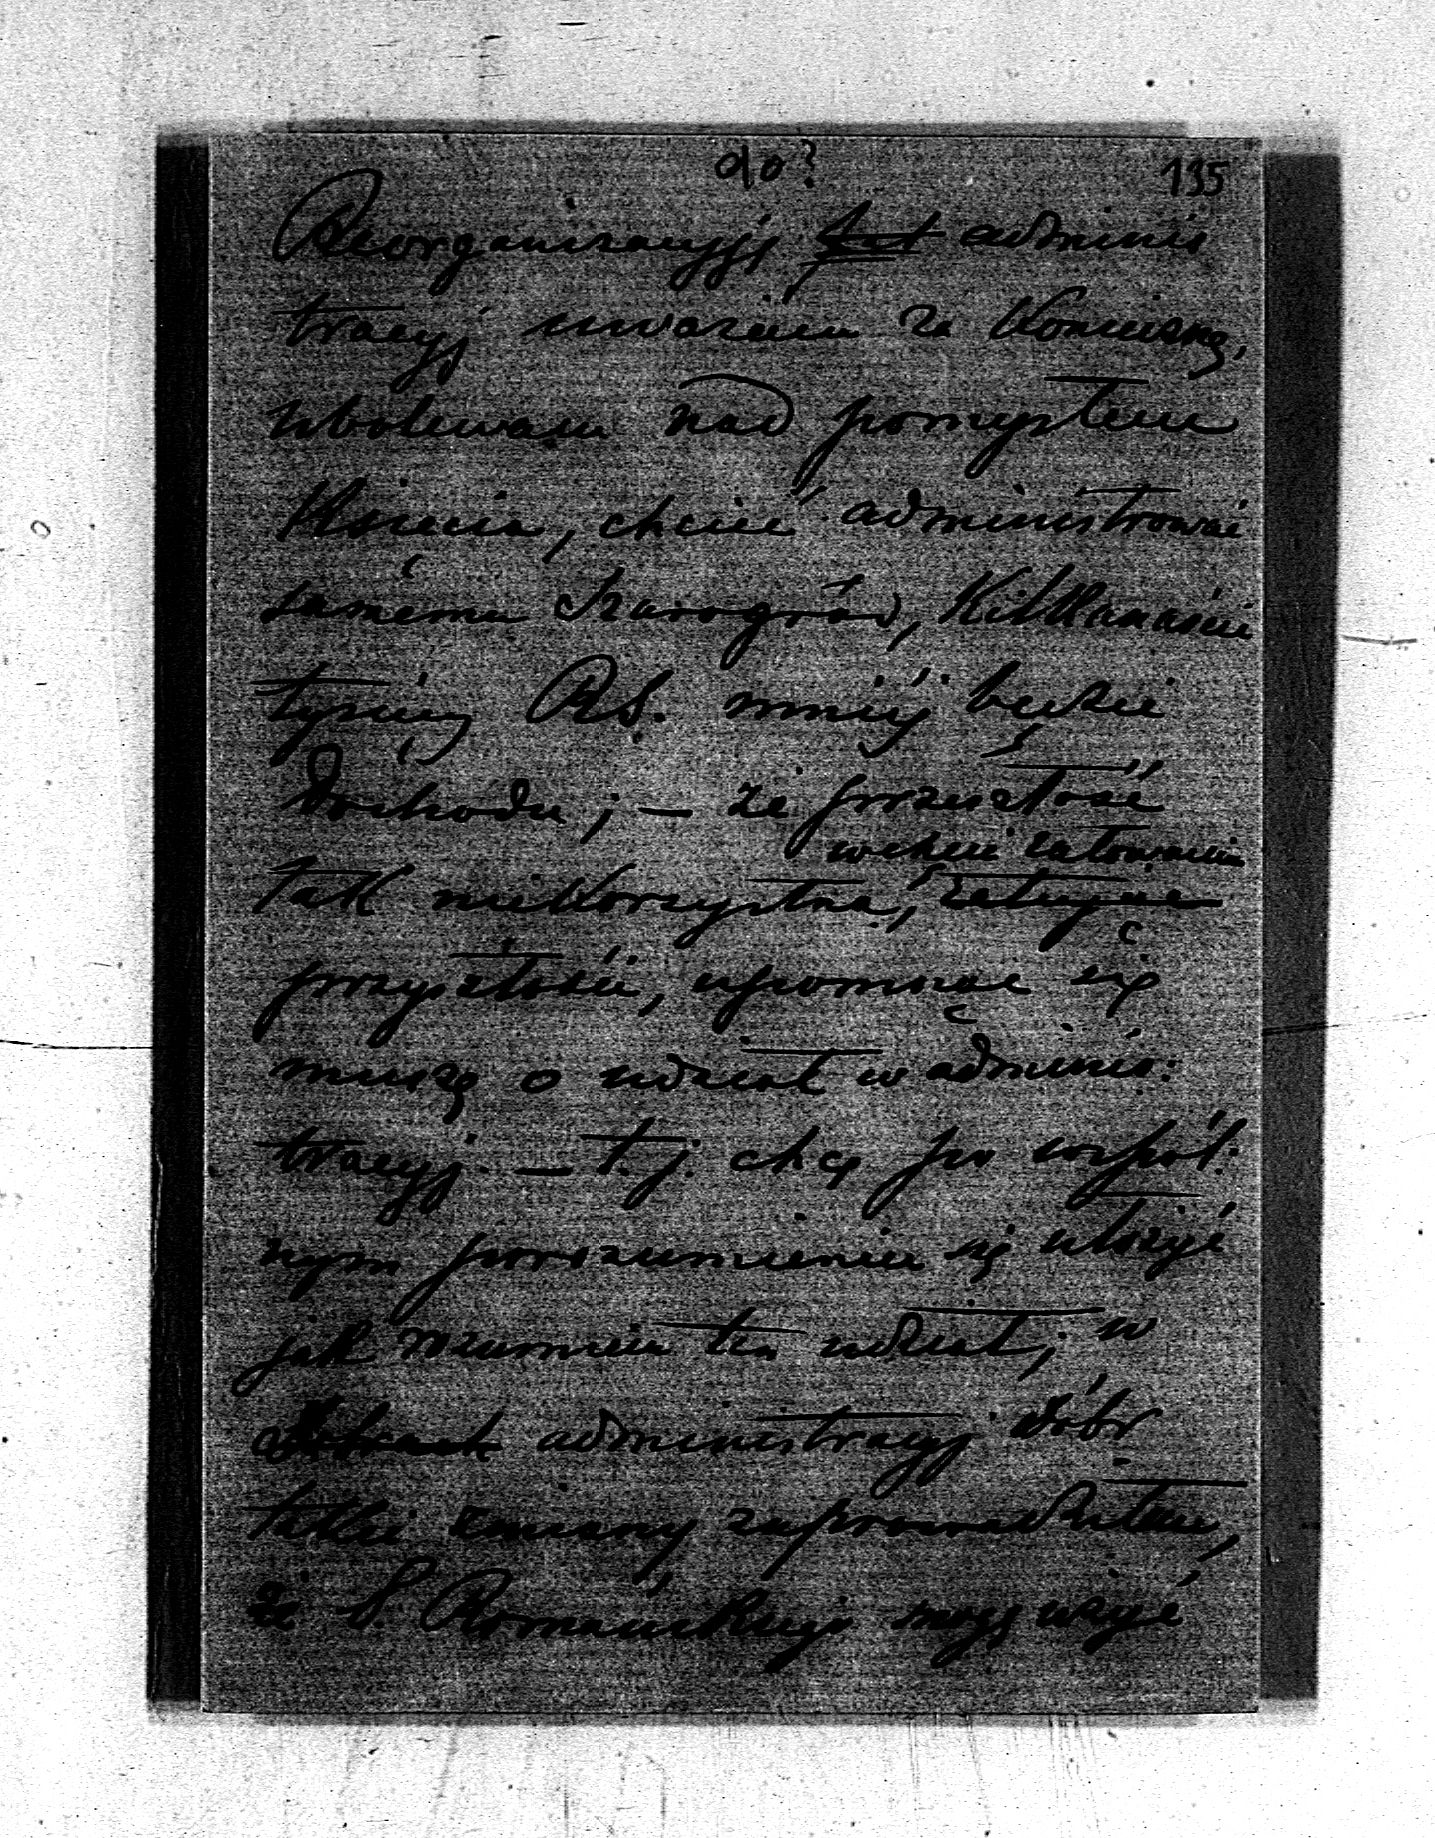 do? 135
Reorganizacyją adminis
tracyj uważam za Konieczną,
ubolewam nad pomysłem
Księcia, chcieć administrować
samému Szarogród, Kilkanaście
tysięcy RS. mniéj będzie
dochodu; – że przeszłość
wchcie
tak niekorzystna, żałując
przyszłości, upomnąć się
muszę o udział w adminis:
tracyj. – t. j. chcę po wspól:
nym porozumieniu się ułożyć
jak rozumiem ten udział; w
administracyj dóbr
takie zmiany zaprowadziłam,
że S. Romańskiego mogę użyć